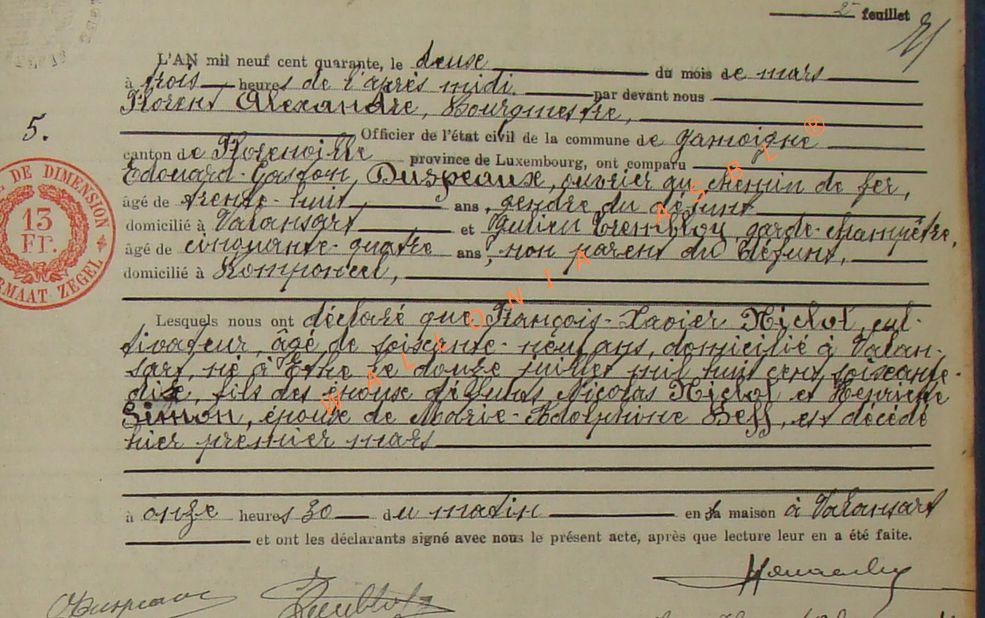 2 feuillet
L'AN mil neuf cent quarante, le deux du mois de mars
à trois heures de l'après midi par devant nous
Florent Alexandre, Bourgmestre,
5.
Officier de l'état civil de la commune de Jamoigne
canton de Florenville province de Luxembourg, ont comparu
Edouard-Gaston, Duspeaux, ouvrier au chemin de fer,
âgé de trente-huit, ans, gendre du défunt
domicilié à Valansart et Julien Trembloy, garde-champêtre,
âgé de cinquante-quatre ans, non parent du défunt,
domicilié à Romponcel,
DE DIMENSION
13
FR.
ZEGEL
Lesquels nous ont déclaré que François-Xavier Michot, cul-
tivateur, âgé de soixante-neuf ans, domicilié à Valan-
sart, né à Ethe le douze juillet mil huit cent soixante-
dix, fils des époux défunts, Nicolas Michot et Henriette
Simon, époux de Marie-Adolphine Deff, est décédé
hier premier mars
à onze heures 30 du matin en sa maison à Valansart
et ont les déclarants signé avec nous le présent acte, après que lecture leur en a été faite.
WALLONIA ASBL ®
Duspeaux